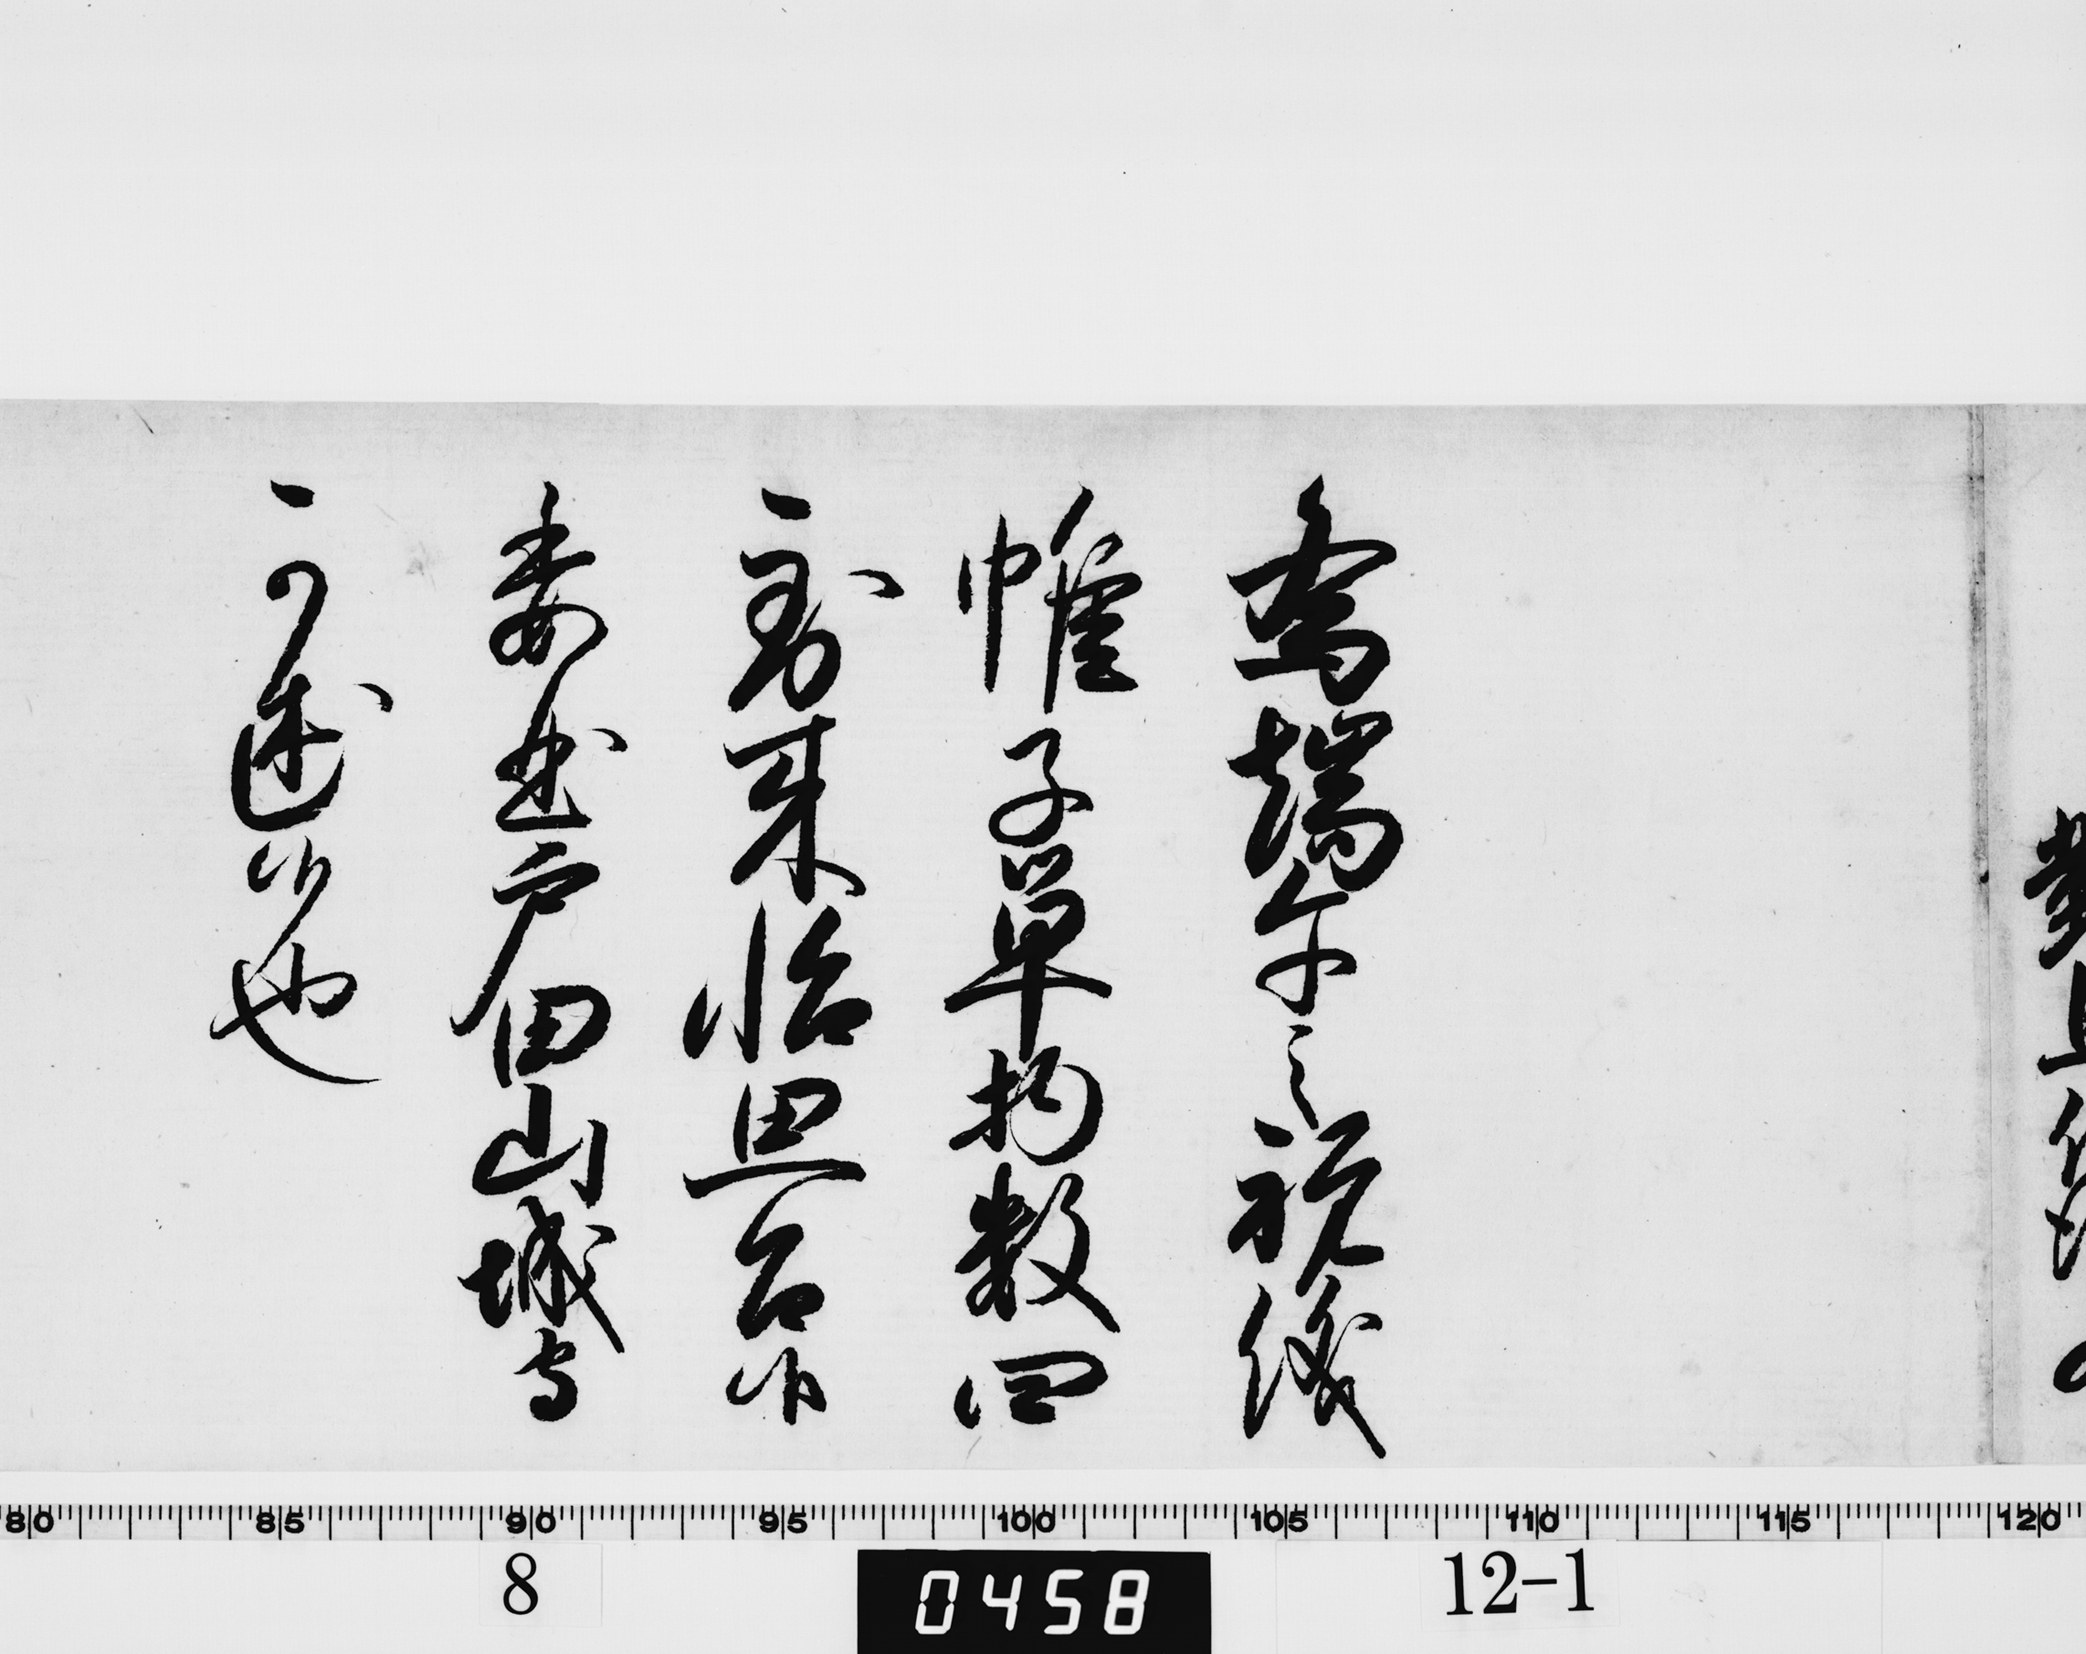 為端午之祝儀
帷子単物数四
到来怡思召候
委曲戸田山城守
可述候也
80 85 90 95 100 105 110 115 120
8
0458
12-1